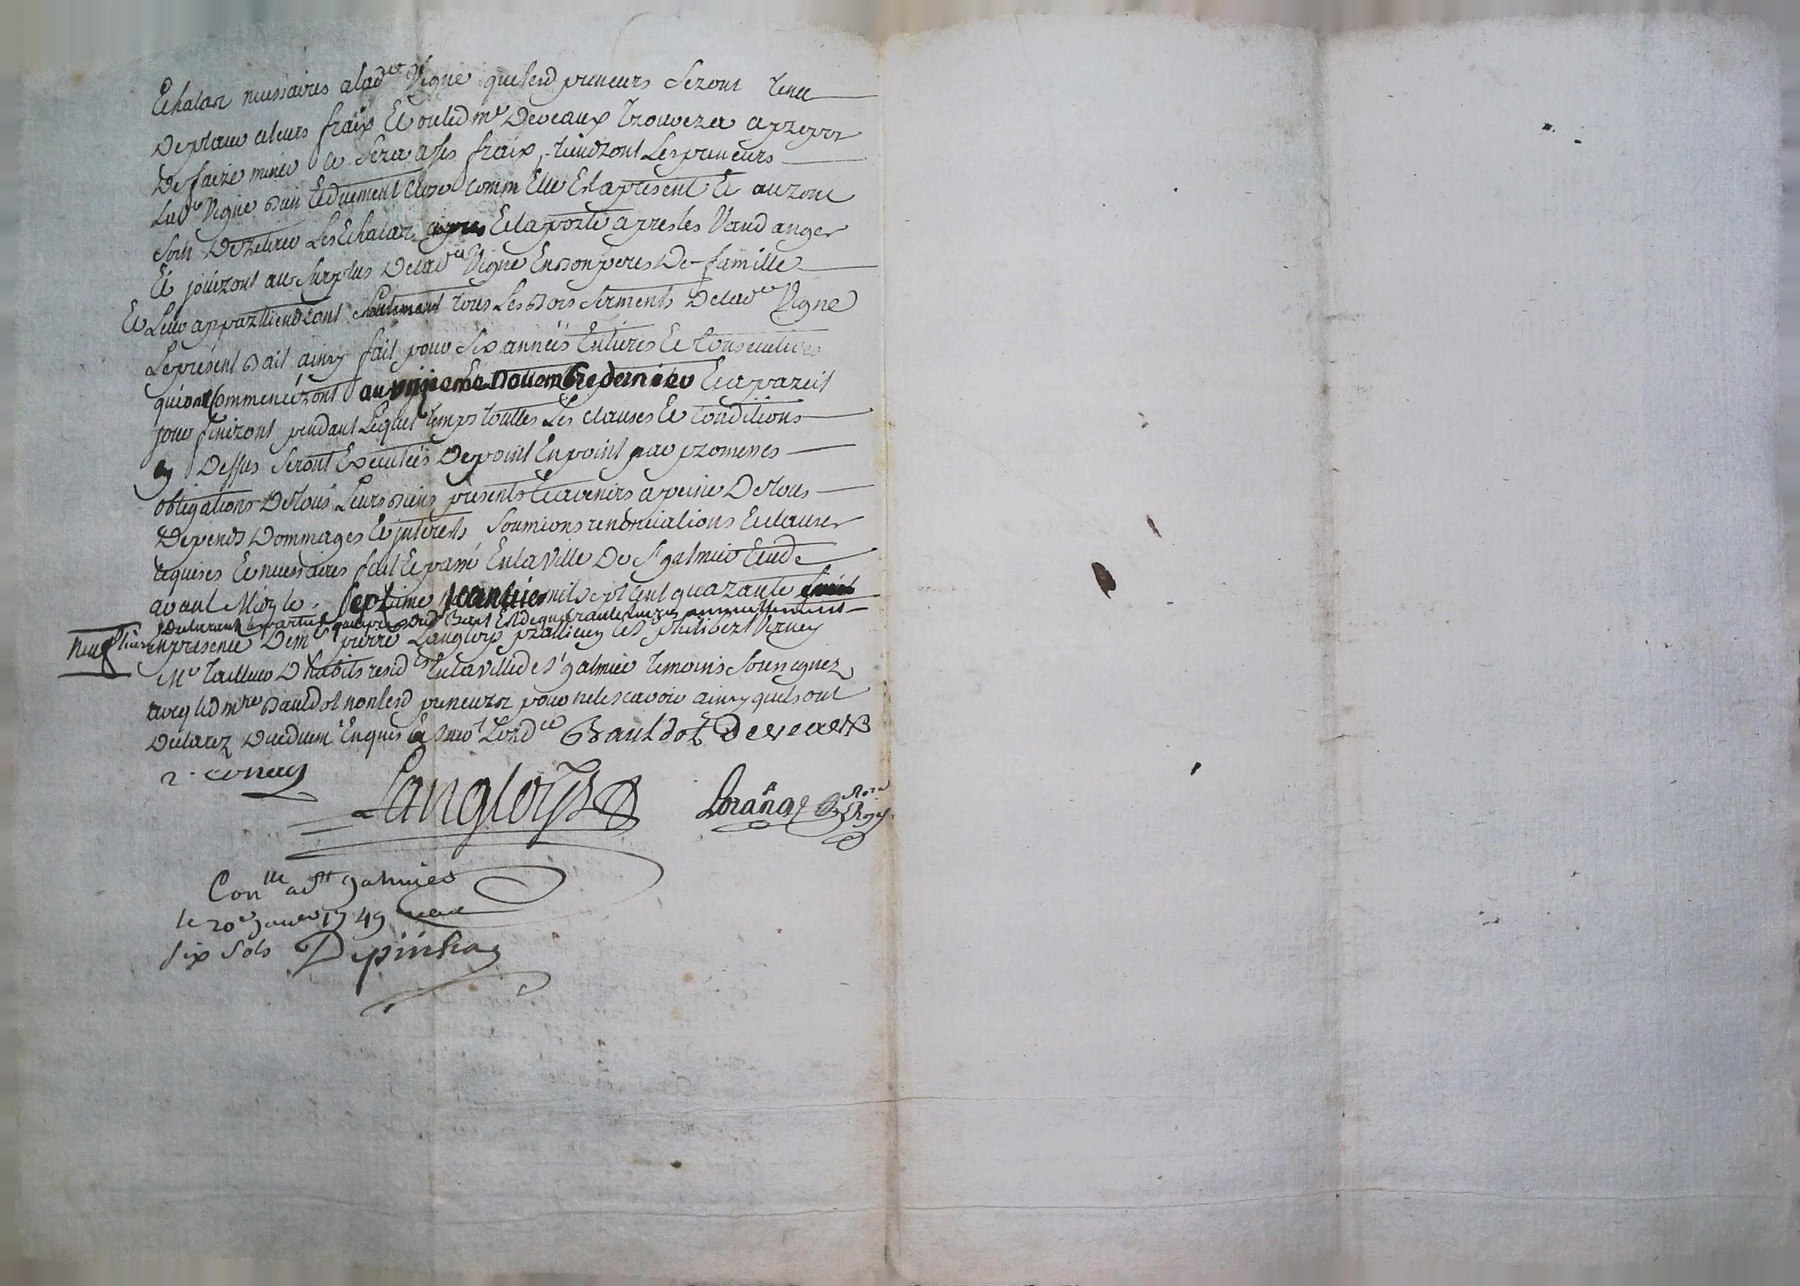 Echalar necessaires a lad.te Vigne que lesd preneurs seront tenu
De placer a leurs fraix Et ou led m.e Deveaux trouvera a propos
De faire miner ce sera a ses fraix, tiendront Les preneurs
Lad.e Vigne bien Et duement close comm Elle Est a present Et auront
soin De retirer Les Echalar apres Et la porte apres les Vandanger
Et joüiront au surplus De lad.te Vigne En bon peres De famille
Et Leur appartiendront seulement tous Les bois serments De lad.te Vigne
Le present bail ainsy fait pour six années Entieres Et Consecutives
qui ont Commencéront au onzieme novembre dernier Et a pareil
jour finiront pendant Lequel temps touttes Les clauses Et Conditions
cy Dessus seront Executées De point En point par promesses
obligations De tous Leurs biens presents Et avenirs a peine De tous
Depends Dommages Et jnterests, soumions renonciations Et clauses
requises Et necessaires fait Et passé En la Ville De S.t galmier Etude
avant Midy le septieme Janvier mil sept cent quarante huit
Declarant les parties que le present Bail Est de quarante livres annuellement
neuf En presence De m.e pierre Langloys praticien Et s.r philibert Verney
M.e tailleur D habits resid.t En la ville de s.t galmier temoins soussignez
avec led m.re bauldot non lesd preneurs pour ne le scavoir ainsy quils ont
Declarez Duedment Enquis Et sur.t Lord.ce Bauldot Deveaux
Langloys
Con.lle a s.tt galmier
le 20.e janvier 1749 recu
six sols Depinhac